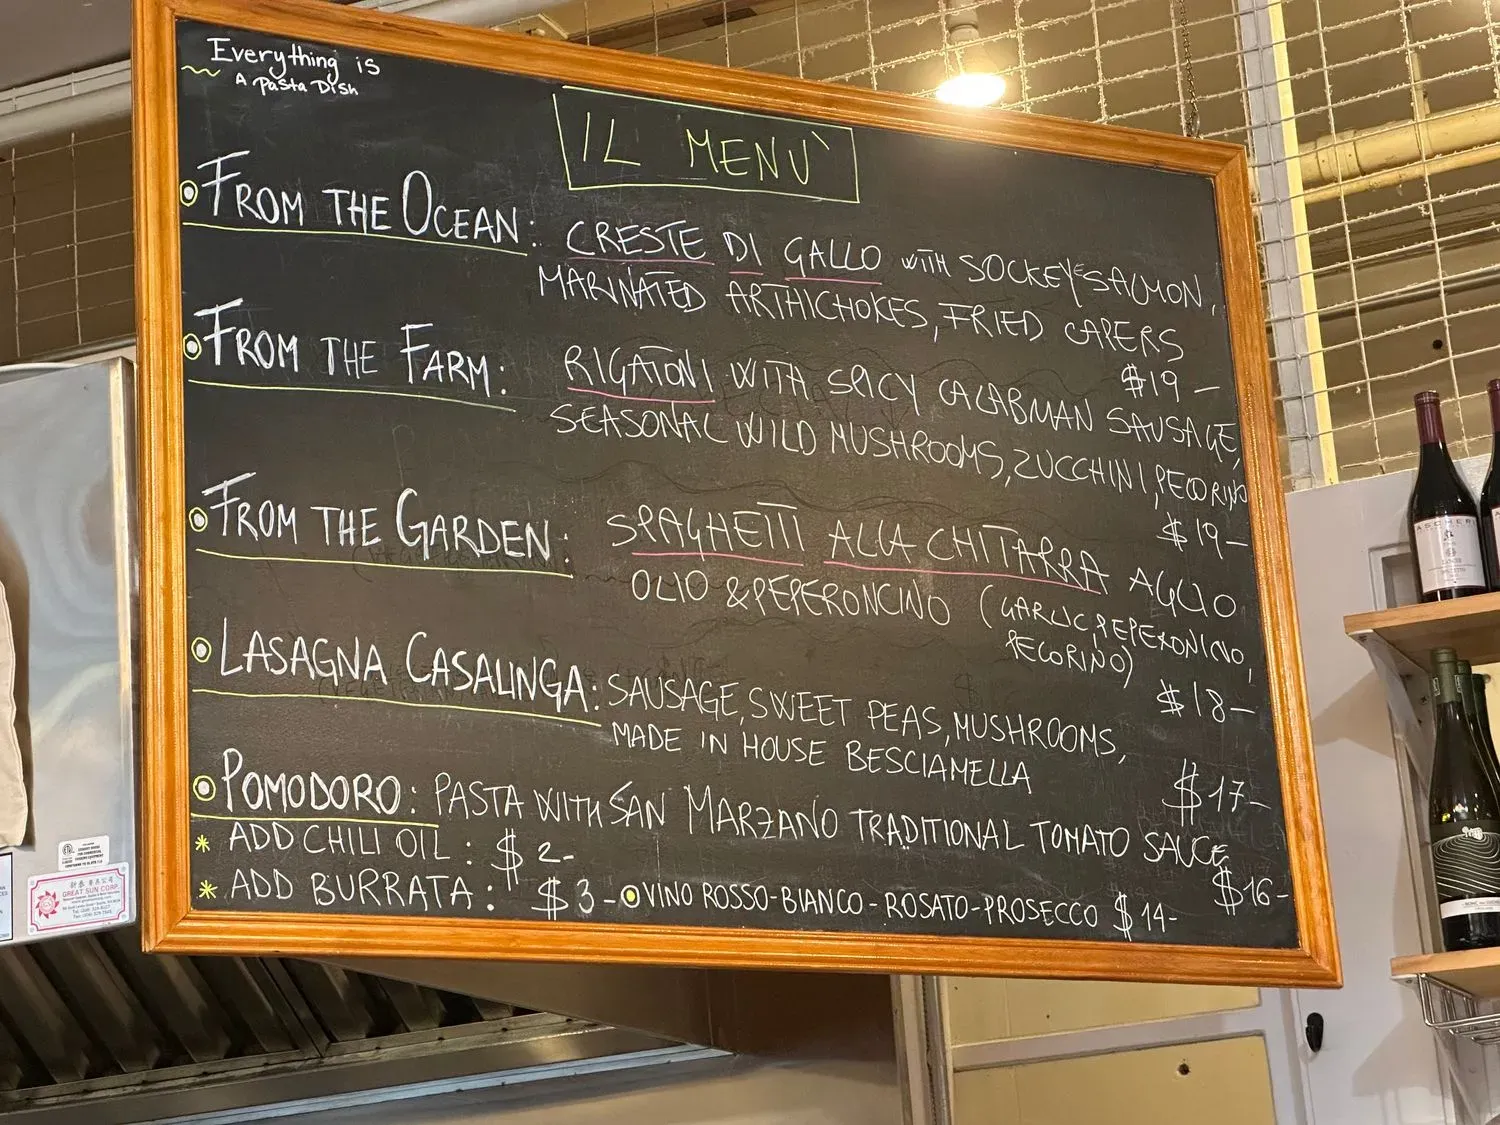 Everything is
A Pasta Dish
IL MENÙ
FROM THE OCEAN: CRESTE DI GALLO WITH SOCKEYE SALMON,
MARINATED ARTHICHOKES, FRIED CAPERS
$19-
FROM THE FARM: RIGATONI WITH SPICY CALABMAN SAUSAGE,
SEASONAL WILD MUSHROOMS, ZUCCHINI, PECORINO
$19-
FROM THE GARDEN: SPAGHETTI ALLA CHITARRA AGLIO
OLIO & PEPERONCINO (GARLIC, PEPERONINO,
PECORINO)
$18-
LASAGNA CASALINGA: SAUSAGE, SWEET PEAS, MUSHROOMS,
MADE IN HOUSE BESCIAMELLA
$17-
POMODORO: PASTA WITH SAN MARZANO TRADITIONAL TOMATO SAUCE,
$16-
* ADD CHILI OIL: $2-
* ADD BURRATA: $3- VINO ROSSO-BIANCO-ROSATO-PROSECCO $14-
GREAT SUN CORP.